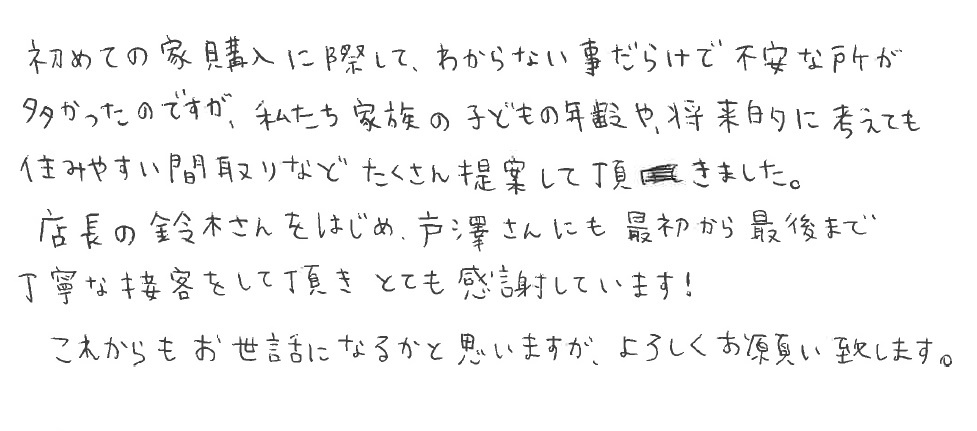 初めての家購入に際して、わからない事だらけで不安な所が
多かったのですが、私たち家族の子どもの年齢や、将来的に考えても
住みやすい間取りなどたくさん提案して頂きました。
店長の鈴木さんをはじめ、戸澤さんにも最初から最後まで
丁寧な接客をして頂きとても感謝しています!
これからもお世話になるかと思いますが、よろしくお願い致します。